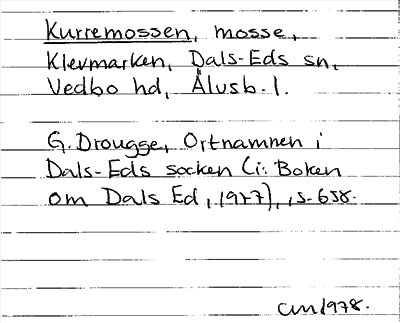 Kurremossen, mosse,
Klevmarken, Dals-Eds sn,
Vedbo hd, Älvsb. l.
G. Drougge, Ortnamnen i
Dals-Eds socken (i: Boken
om Dals Ed, 1977), s. 658.
1978.